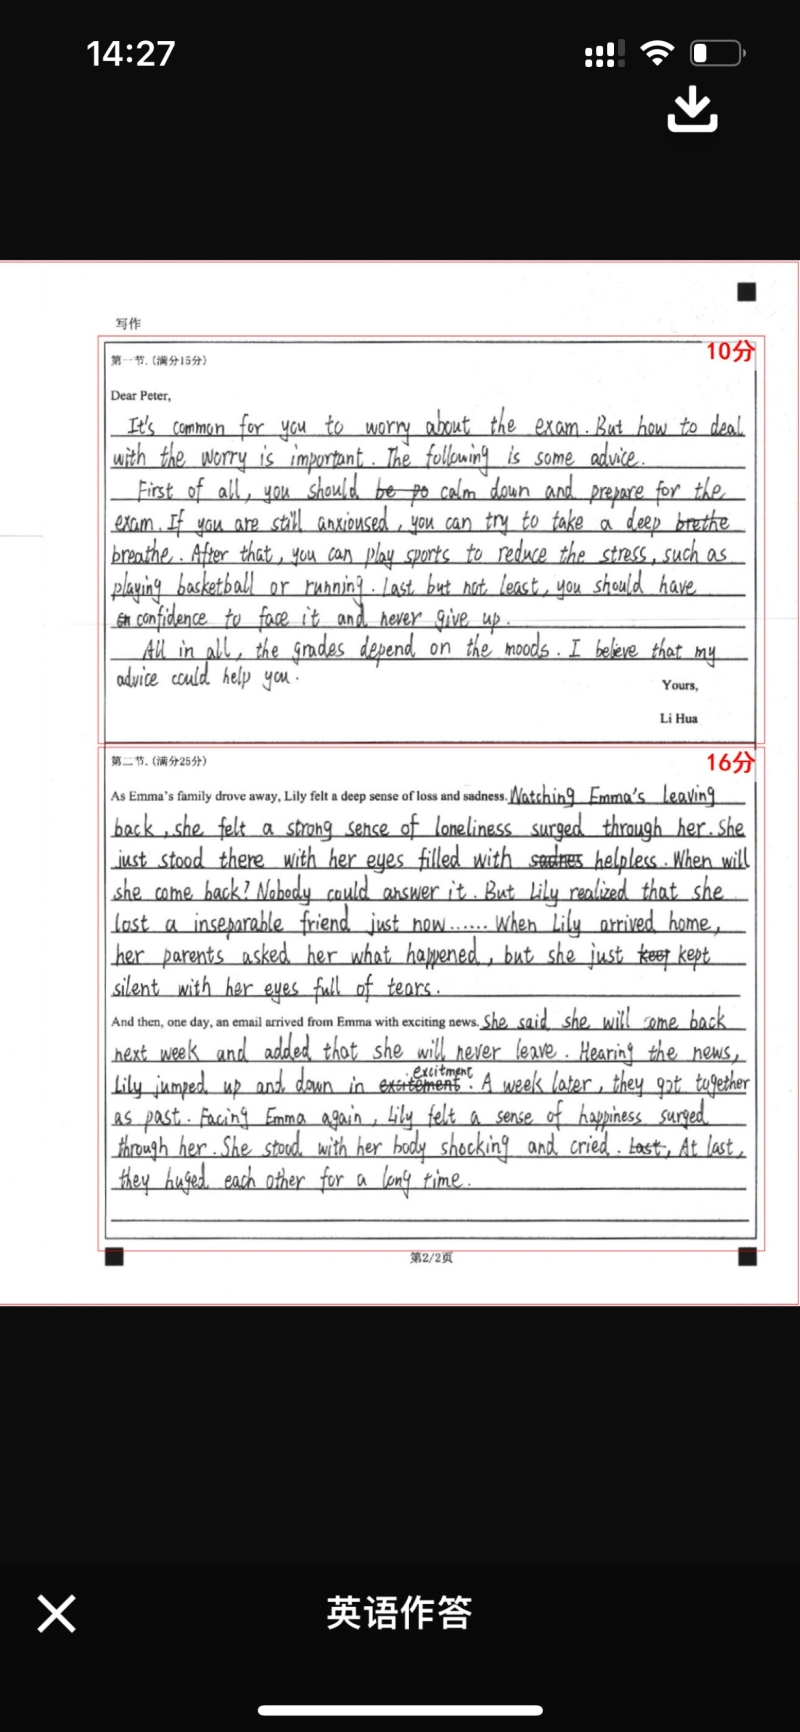 14:27
写作
第一节.(满分15分)
10分
Dear Peter,
It's common for you to worry about the exam. But how to deal
with the worry is important. The following is some advice.
First of all, you should be po calm down and prepare for the
exam. If you are still anxioused, you can try to take a deep brethe
breathe. After that, you can play sports to reduce the stress, such as
playing basketball or running. Last but not least, you should have
confidence to face it and never give up.
All in all, the grades depend on the moods. I believe that my
advice could help you.
Yours,
Li Hua
第二节.(满分25分)
16分
As Emma's family drove away, Lily felt a deep sense of loss and sadness. Watching Emma's leaving
back, she felt a strong sense of loneliness surged through her. She
just stood there with her eyes filled with sadnes helpless. When will
she come back? Nobody could answer it. But Lily realized that she
lost a inseparable friend just now...... When Lily arrived home,
her parents asked her what happened, but she just keep kept
silent with her eyes full of tears.
And then, one day, an email arrived from Emma with exciting news. She said she will come back
next week and added that she will never leave. Hearing the news,
excitment
Lily jumped up and down in excitement. A week later, they got together
as past. Facing Emma again, Lily felt a sense of happiness surged
through her. She stood with her body shocking and cried. Last, At last,
they huged each other for a long time.
第2/2页
英语作答